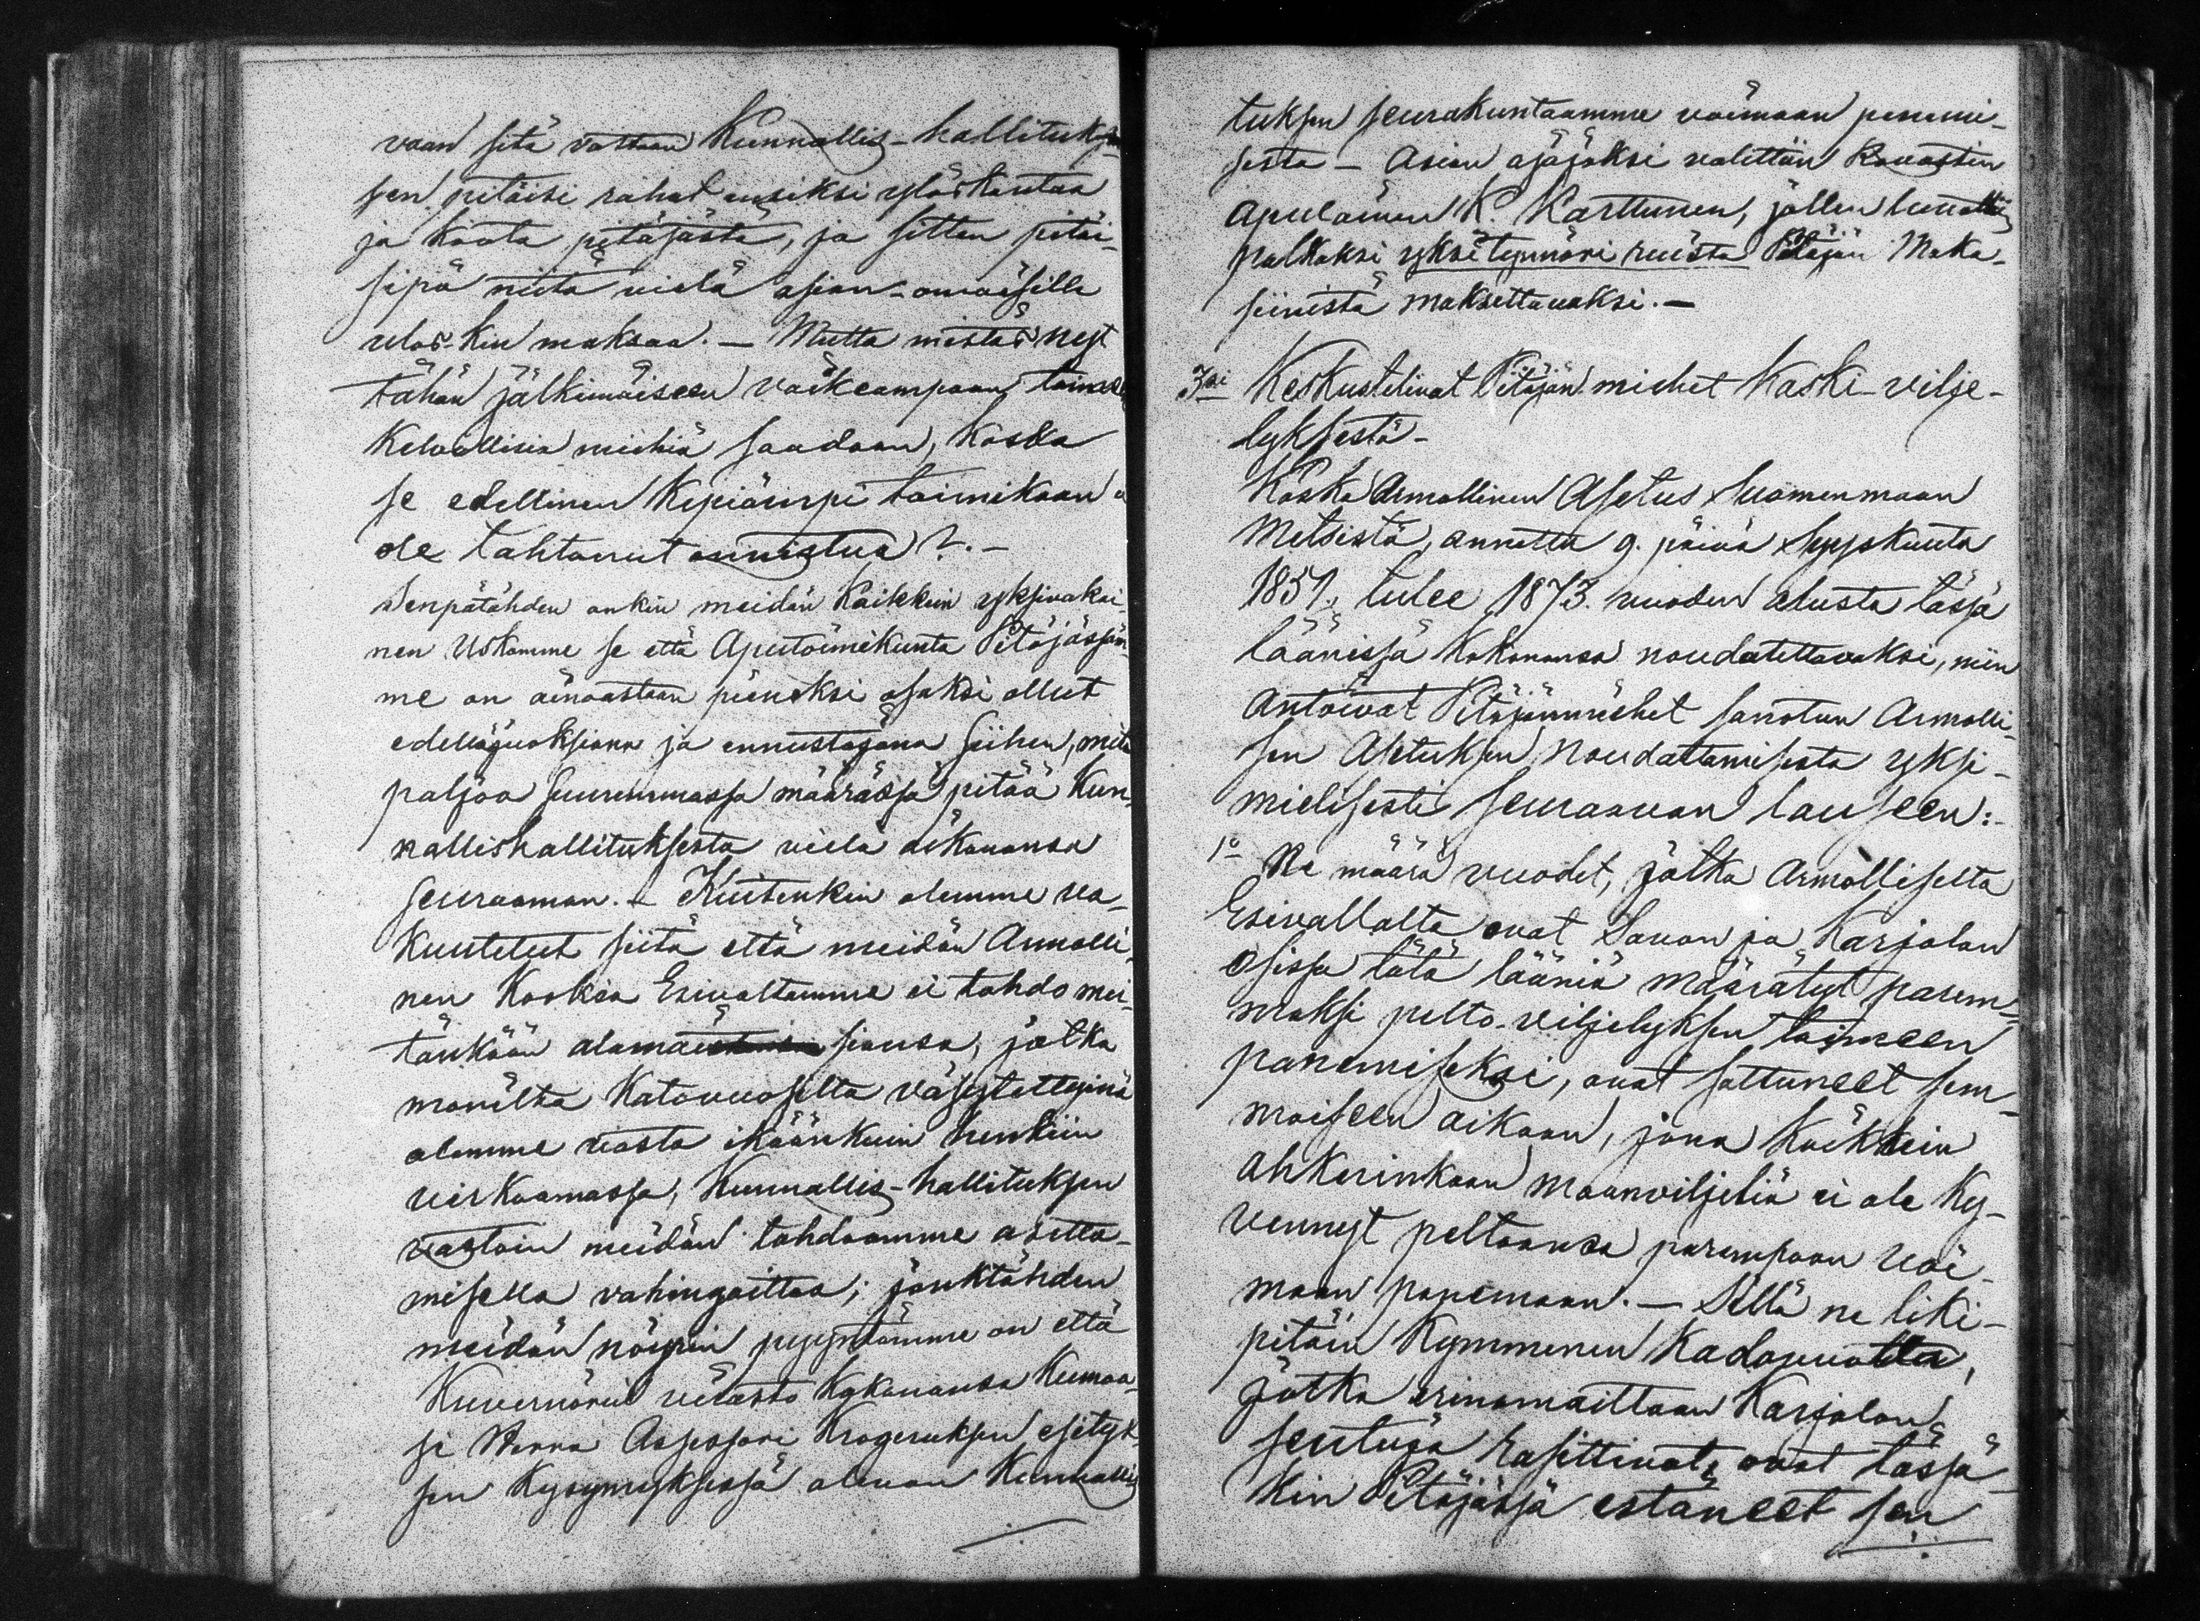 vaan sitä vastaan Kunnallis-hallituk-
sen pitäisi rahat ensiksi ylöskantaa
ja koota pitäjästä, ja sitten pitäi-
sipä niitä vielä asian-omaisille
ulos-kin maksaa. — Mutta mistäs nyt
tähän jälkimäiseen vaikeampaan toimeen
Kelvollisia miehiä saadaan, koska
se edellinen Kepiämpi toimikaan ei
ole tahtonut onnistua?. —
Senpätähden onkin meidän Kaikkein yksivakai-
nen Uskomme se että Aputoimikunta Pitäjässäm-
me on ainoastaan pieneksi osaksi ollut
edelläjuoksiana ja ennustajana siihen, mitä
paljoa suuremmassa määrässä pitää Kun-
nallishallituksesta vielä aikanansa
seuraaman. — Kuitenkin olemme va-
kuutetut siitä että meidän Armolli-
nen Korkea Esivaltamme ei tahdo mei-
tänkään alamaisiansa, jotka
monelta Katovuosilta väsytettyinä
olemme vasta ikäänkuin henkiin
virkoamassa, Kunnallis-hallituksen
vastoin meidän tahdoamme asetta-
misella vahingoittaa; jonktähden
meidän nöyrin pyyntömme on että
Kuvernörin virasto Kykynänsä Kumoa-
si Herra Asessori Krogeruksen esityk-
sen Kysymyksessä olevan Kunnallis
tuksen seurakuntaamme voimaan panemi-
sesta — Asian ajajaksi valittiin Rovastin
apulainen K. Karttunen, jollen luvattiin
palkaksi yksi tynnöri ruista Pitäjän Maka-
siinista maksettavaksi. —
3ksi Keskustelivat Pitäjän miehet Kaski-vilje-
lyksestä —
Koska Armollinen Asetus Suomenmaan
Metsistä, annettu 9. päivä Syyskuuta
1851, tulee 1873. vuoden alusta tässä
läänissä kokonansa noudatettavaksi, niin
Antoivat Pitäjänmiehet sanotun Armolli-
sen Asetuksen noudattamisesta yksi-
mielisesti seuraavan lauseen:
1o Ne määrä vuodet, jotka Armolliselta
Esivallalta ovat Savon ja Karjalan
osissa tätä lääniä määrätyt parem-
maksi pelto-viljelyksen toimeen
panemiseksi, ovat sattuneet sem-
moiseen aikaan, jona kaikkein
ahkerinkaan maanviljeliä ei ole Ky-
vennyt peltoansa parempaan voi-
maan panemaan. — Sillä ne liki-
pitäin Kymmenen Kadovuotta,
jotka erinomaittain Karjalan
seutuja rasittivat, ovat tässä-
kin Pitäjässä estäneet sen